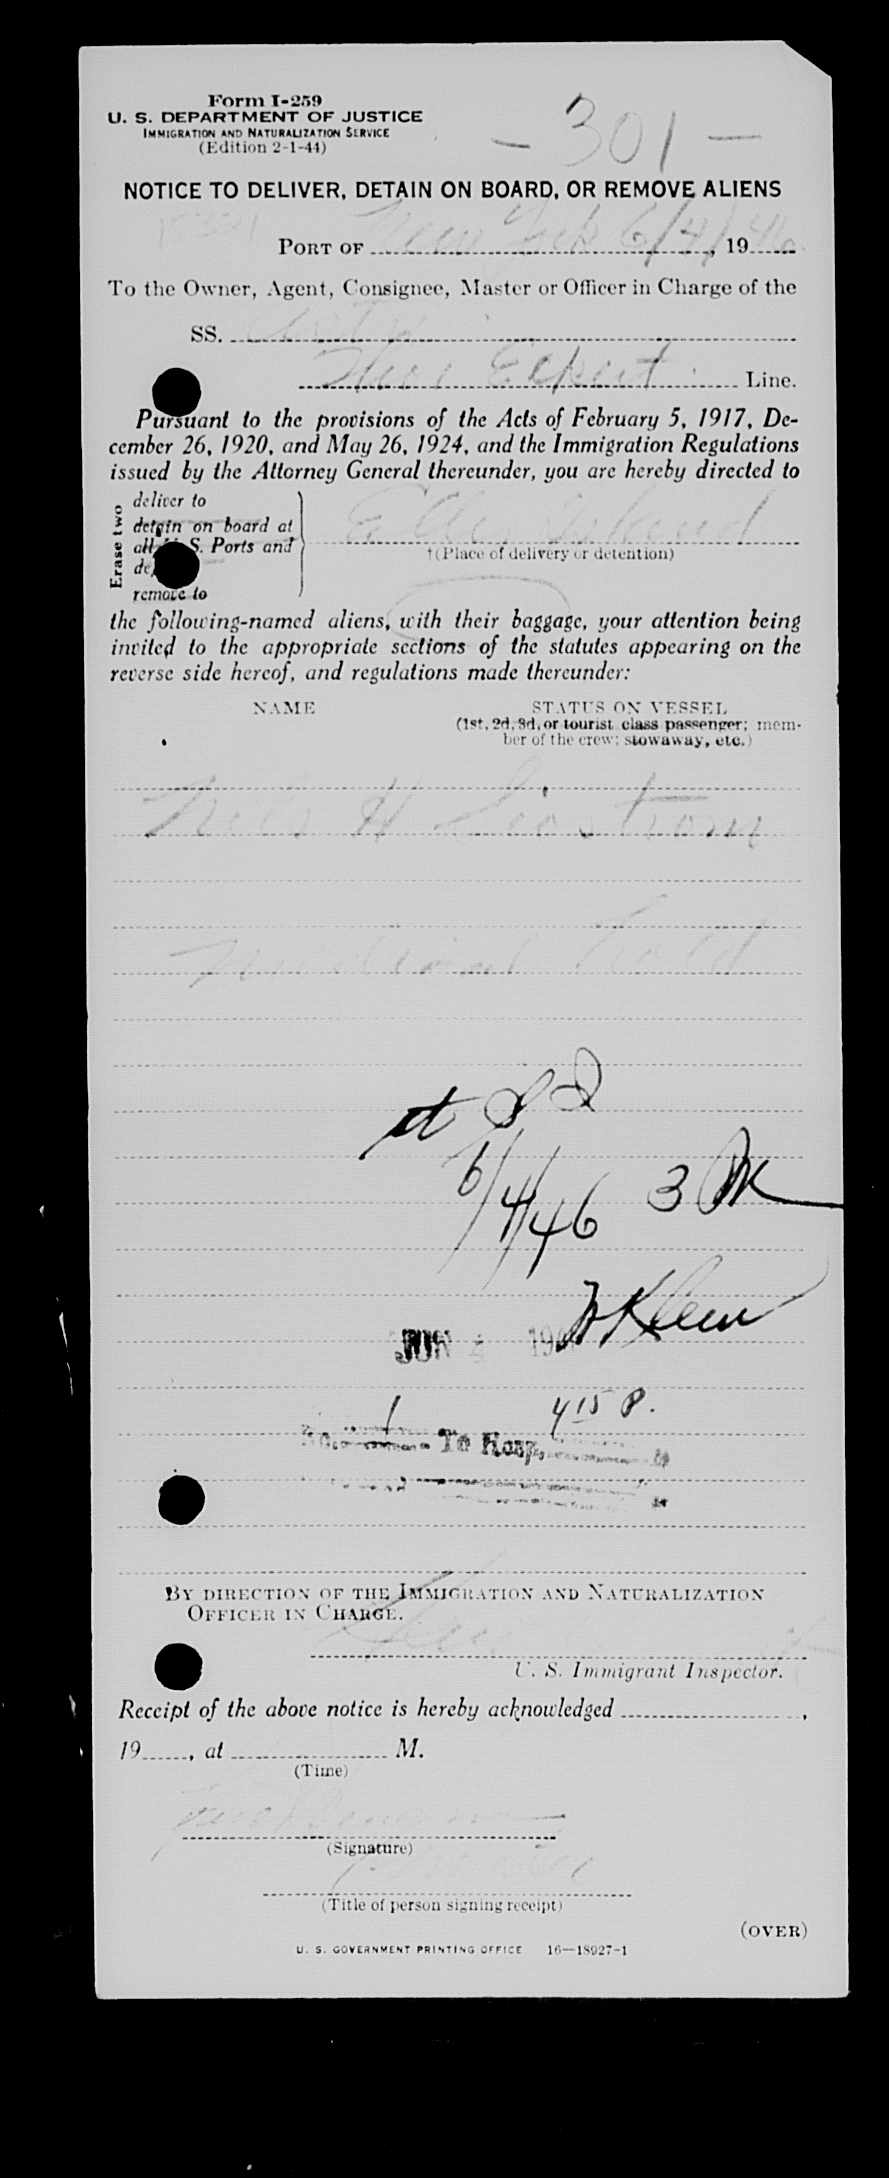 Form I-259
U. S. DEPARTMENT OF JUSTICE
IMMIGRATION AND NATURALIZATION SERVICE
(Edition 2-1-44)
- 301 -
NOTICE TO DELIVER, DETAIN ON BOARD, OR REMOVE ALIENS
PORT OF New York 6/4/, 19 46
To the Owner, Agent, Consignee, Master or Officer in Charge of the
SS.
Thor Eckert Line.
Pursuant to the provisions of the Acts of February 5, 1917, De-
cember 26, 1920, and May 26, 1924, and the Immigration Regulations
issued by the Attorney General thereunder, you are hereby directed to
Erase two
deliver to
detain on board at
all U. S. Ports and
remove to
Ellis Island
†(Place of delivery or detention)
the following-named aliens, with their baggage, your attention being
invited to the appropriate sections of the statutes appearing on the
reverse side hereof, and regulations made thereunder:
NAME STATUS ON VESSEL
(1st, 2d, 3d, or tourist class passenger; mem-
ber of the crew; stowaway, etc.)
Nils H Sjostrom
Medical hold
6/4/46 3 PM
Klein
JUN 4 19
1 4 15 P.
To Hosp.
BY DIRECTION OF THE IMMIGRATION AND NATURALIZATION
OFFICER IN CHARGE.
U. S. Immigrant Inspector.
Receipt of the above notice is hereby acknowledged ,
19 , at M.
(Time)
(Signature)
(Title of person signing receipt)
(OVER)
U. S. GOVERNMENT PRINTING OFFICE 16—18927-1